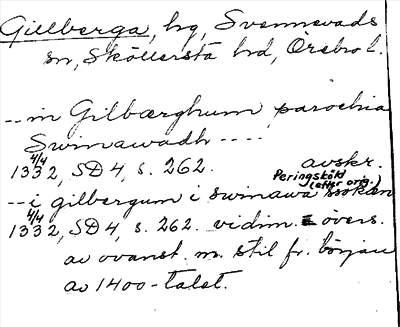 Gillberga, hg, Svennevads
sn, Sköllersta hd, Örebro l.
-- in Gilbærghum parochia
Swinawadh ----
4/4
1332, SD 4, s. 262. avskr.
Peringsköld
(efter orig.)
-- i gilbergum i swinawa ssoken
4/4
1332, SD 4, s. 262. vidim. övers.
av ovanst. m. stil fr. början
av 1400-talet.